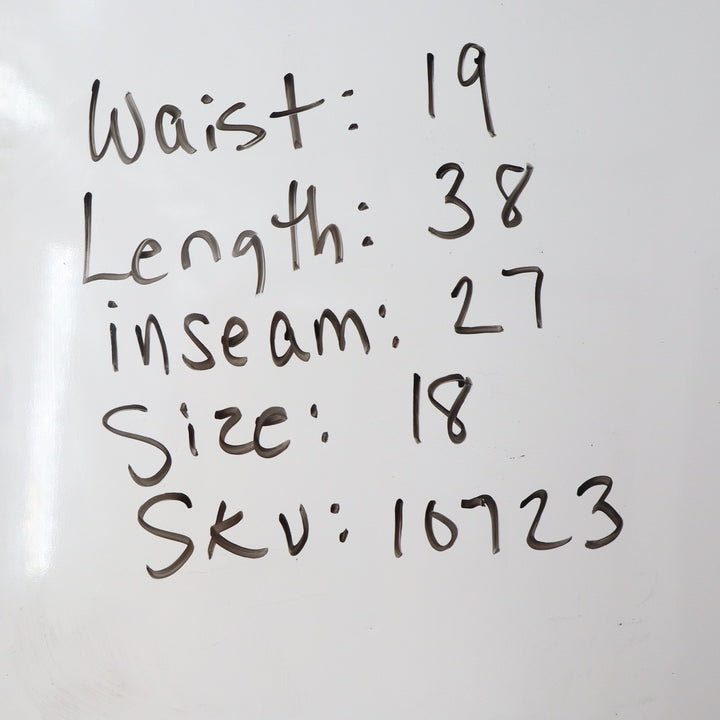 Waist: 19
Length: 38
inseam: 27
Size: 18
SKU: 10723